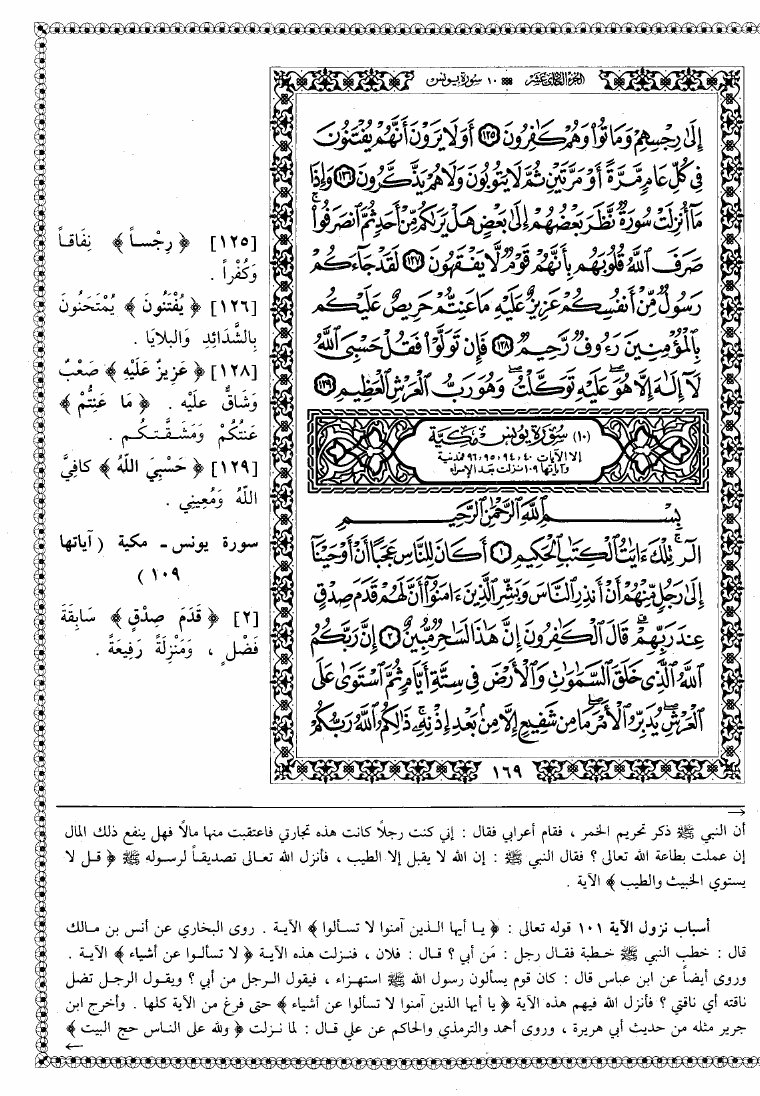 الجزء الحادي عشر ١٠ سورة يونس
إِلَىٰ رِجْسِهِمْ وَمَاتُوا۟ وَهُمْ كَٰفِرُونَ ١٢٥ أَوَلَا يَرَوْنَ أَنَّهُمْ يُفْتَنُونَ
فِى كُلِّ عَامٍ مَّرَّةً أَوْ مَرَّتَيْنِ ثُمَّ لَا يَتُوبُونَ وَلَا هُمْ يَذَّكَّرُونَ ١٢٦ وَإِذَا
مَآ أُنزِلَتْ سُورَةٌ نَّظَرَ بَعْضُهُمْ إِلَىٰ بَعْضٍ هَلْ يَرَىٰكُم مِّنْ أَحَدٍ ثُمَّ ٱنصَرَفُوا۟ۚ
صَرَفَ ٱللَّهُ قُلُوبَهُم بِأَنَّهُمْ قَوْمٌ لَّا يَفْقَهُونَ ١٢٧ لَقَدْ جَآءَكُمْ
رَسُولٌ مِّنْ أَنفُسِكُمْ عَزِيزٌ عَلَيْهِ مَا عَنِتُّمْ حَرِيصٌ عَلَيْكُم
بِٱلْمُؤْمِنِينَ رَءُوفٌ رَّحِيمٌ ١٢٨ فَإِن تَوَلَّوْا۟ فَقُلْ حَسْبِىَ ٱللَّهُ
لَآ إِلَٰهَ إِلَّا هُوَۖ عَلَيْهِ تَوَكَّلْتُۖ وَهُوَ رَبُّ ٱلْعَرْشِ ٱلْعَظِيمِ ١٢٩
(١٠) سورة يونس مكية
إلا الآيات ٤٠، ٩٤، ٩٥، ٩٦ فمدنية
وآياتها ١٠٩ نزلت بعد الإسراء
بِسْمِ ٱللَّهِ ٱلرَّحْمَٰنِ ٱلرَّحِيمِ
الٓرۚ تِلْكَ ءَايَٰتُ ٱلْكِتَٰبِ ٱلْحَكِيمِ ١ أَكَانَ لِلنَّاسِ عَجَبًا أَنْ أَوْحَيْنَآ
إِلَىٰ رَجُلٍ مِّنْهُمْ أَنْ أَنذِرِ ٱلنَّاسَ وَبَشِّرِ ٱلَّذِينَ ءَامَنُوٓا۟ أَنَّ لَهُمْ قَدَمَ صِدْقٍ
عِندَ رَبِّهِمْۗ قَالَ ٱلْكَٰفِرُونَ إِنَّ هَٰذَا لَسَٰحِرٌ مُّبِينٌ ٢ إِنَّ رَبَّكُمُ
ٱللَّهُ ٱلَّذِى خَلَقَ ٱلسَّمَٰوَٰتِ وَٱلْأَرْضَ فِى سِتَّةِ أَيَّامٍ ثُمَّ ٱسْتَوَىٰ عَلَى
ٱلْعَرْشِۖ يُدَبِّرُ ٱلْأَمْرَۖ مَا مِن شَفِيعٍ إِلَّا مِنۢ بَعْدِ إِذْنِهِۦۚ ذَٰلِكُمُ ٱللَّهُ رَبُّكُمْ
١٦٩
[١٢٥] ﴿ رِجْساً ﴾ نِفَاقاً
وَكُفْراً .
[١٢٦] ﴿ يُفْتَنُونَ ﴾ يُمْتَحَنُونَ
بِالشَّدَائِدِ وَالبلايَا .
[١٢٨] ﴿ عَزِيزٌ عَلَيْهِ ﴾ صَعْبٌ
وَشَاقٌّ علَيْه . ﴿ مَا عَنِتُّمْ ﴾
عَنتُكُمْ وَمَشَقَّتكُم .
[١٢٩] ﴿ حَسْبِيَ اللَّهُ ﴾ كافِيَّ
اللَّهُ وَمُعِيني .
سورة يونس ـ مكية ( آياتها
١٠٩ )
[٢] ﴿ قَدَمَ صِدْقٍ ﴾ سَابِقَةَ
فَضْلٍ ، وَمَنْزِلَةً رَفِيعَةً .
أن النبي ﷺ ذكر تحريم الخمر ، فقام أعرابي فقال : إني كنت رجلاً كانت هذه تجارتي فاعتقبت منها مالاً فهل ينفع ذلك المال
إن عملت بطاعة الله تعالى ؟ فقال النبي ﷺ : إن الله لا يقبل إلا الطيب ، فأنزل الله تعالى تصديقاً لرسوله ﷺ ﴿ قل لا
يستوي الخبيث والطيب ﴾ الآية .
أسباب نزول الآية ١٠١ قوله تعالى : ﴿ يا أيها الذين آمنوا لا تسألوا ﴾ الآية . روى البخاري عن أنس بن مالك
قال : خطب النبي ﷺ خطبة فقال رجل : مَن أبي ؟ قال : فلان ، فنزلت هذه الآية ﴿ لا تسألوا عن أشياء ﴾ الآية .
وروى أيضاً عن ابن عباس قال : كان قوم يسألون رسول الله ﷺ استهزاء ، فيقول الرجل من أبي ؟ ويقول الرجل تضل
ناقته أي ناقتي ؟ فأنزل الله فيهم هذه الآية ﴿ يا أيها الذين آمنوا لا تسألوا عن أشياء ﴾ حتى فرغ من الآية كلها . وأخرج ابن
جرير مثله من حديث أبي هريرة ، وروى أحمد والترمذي والحاكم عن علي قال : لما نزلت ﴿ ولله على الناس حج البيت ﴾